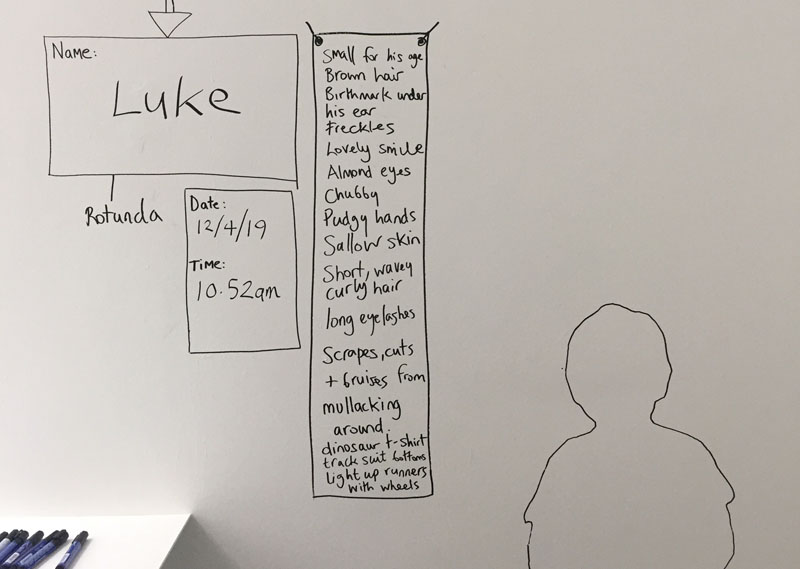 Name:
Luke
Rotunda
Date:
12/4/19
Time:
10.52am
Small for his age
Brown hair
Birthmark under
his ear
Freckles
Lovely smile
Almond eyes
Chubby
Pudgy hands
Sallow skin
Short, wavey
curly hair
long eyelashes
Scrapes, cuts
+ bruises from
mullacking
around.
dinosaur t-shirt
track suit bottoms
Light up runners
with wheels